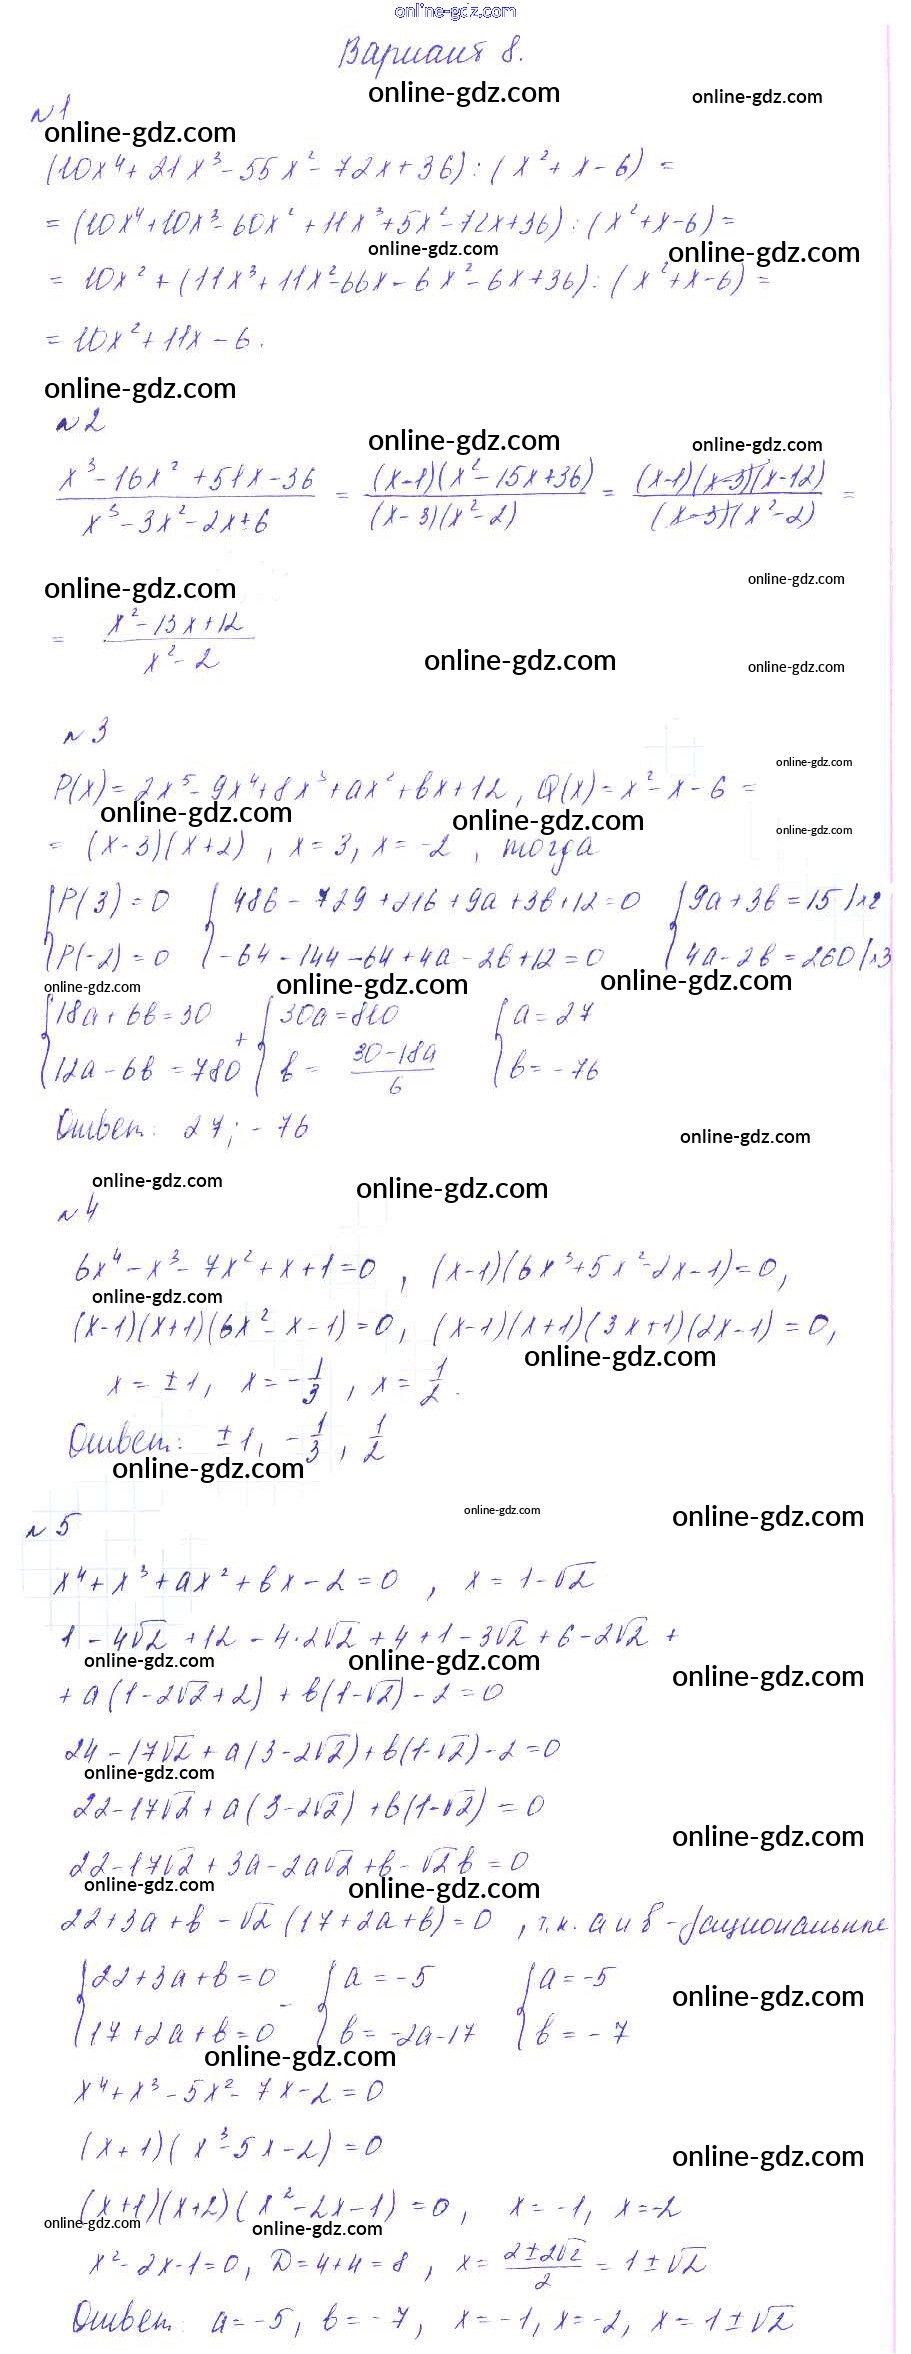 online-gdz.com
Вариант 8.
online-gdz.com online-gdz.com
№1
online-gdz.com
(10x⁴ + 21x³ - 55x² - 72x + 36) : (x² + x - 6) =
= (10x⁴ + 10x³ - 60x² + 11x³ + 5x² - 72x + 36) : (x² + x - 6) =
online-gdz.com online-gdz.com
= 10x² + (11x³ + 11x² - 66x - 6x² - 6x + 36) : (x² + x - 6) =
= 10x² + 11x - 6.
online-gdz.com
№2
online-gdz.com online-gdz.com
(x³ - 16x² + 51x - 36)/(x³ - 3x² - 2x + 6) = ((x-1)(x² - 15x + 36))/((x-3)(x² - 2)) = ((x-1)(x-3)(x-12))/((x-3)(x²-2)) =
online-gdz.com online-gdz.com
= (x² - 13x + 12)/(x² - 2)
online-gdz.com online-gdz.com
№3
online-gdz.com
P(x) = 2x⁵ - 9x⁴ + 8x³ + ax² + bx + 12, Q(x) = x² - x - 6 =
online-gdz.com online-gdz.com online-gdz.com
= (x-3)(x+2), x = 3, x = -2, тогда
{P(3) = 0 {486 - 729 + 216 + 9a + 3b + 12 = 0 {9a + 3b = 15 |×2
{P(-2) = 0 {-64 - 144 - 64 + 4a - 2b + 12 = 0 {4a - 2b = 260 |×3
online-gdz.com online-gdz.com online-gdz.com
{18a + 6b = 30 + {30a = 810 {a = 27
{12a - 6b = 780 {b = (30 - 18a)/6 {b = -76
Ответ: 27; -76
online-gdz.com
online-gdz.com online-gdz.com
№4
6x⁴ - x³ - 7x² + x + 1 = 0, (x-1)(6x³ + 5x² - 2x - 1) = 0,
online-gdz.com
(x-1)(x+1)(6x² - x - 1) = 0, (x-1)(x+1)(3x+1)(2x-1) = 0,
online-gdz.com
x = ±1, x = -1/3, x = 1/2.
Ответ: ±1, -1/3, 1/2
online-gdz.com
online-gdz.com online-gdz.com
№5
x⁴ + x³ + ax² + bx - 2 = 0, x = 1 - √2
1 - 4√2 + 12 - 4·2√2 + 4 + 1 - 3√2 + 6 - 2√2 +
online-gdz.com online-gdz.com online-gdz.com
+ a(1 - 2√2 + 2) + b(1 - √2) - 2 = 0
24 - 17√2 + a(3 - 2√2) + b(1 - √2) - 2 = 0
online-gdz.com
22 - 17√2 + a(3 - 2√2) + b(1 - √2) = 0
online-gdz.com
22 - 17√2 + 3a - 2a√2 + b - √2b = 0
online-gdz.com online-gdz.com
22 + 3a + b - √2(17 + 2a + b) = 0, т.к. a и b - рациональные
{22 + 3a + b = 0 - {a = -5 {a = -5
online-gdz.com
{17 + 2a + b = 0 {b = -2a - 17 {b = -7
online-gdz.com
x⁴ + x³ - 5x² - 7x - 2 = 0
(x+1)(x³ - 5x - 2) = 0
online-gdz.com
(x+1)(x+2)(x² - 2x - 1) = 0, x = -1, x = -2
online-gdz.com online-gdz.com
x² - 2x - 1 = 0, D = 4 + 4 = 8, x = (2 ± 2√2)/2 = 1 ± √2
Ответ: a = -5, b = -7, x = -1, x = -2, x = 1 ± √2